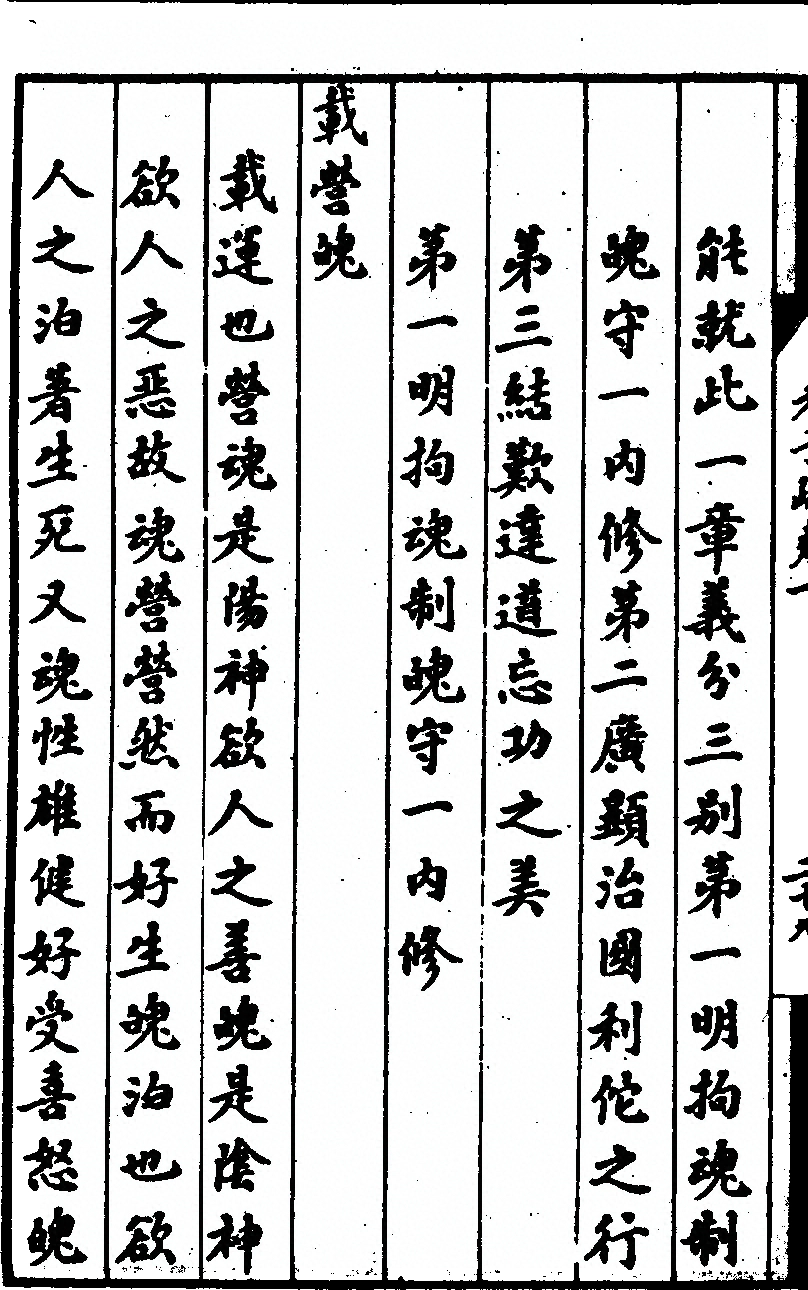 能就此一章義分三别第一明拘魂制
魄守一内修第二廣顯治國利佗之行
第三結歎達道忘功之美
第一明拘魂制魄守一内修
載營魄
載運也營魂是陽神欲人之善魄是陰神
欲人之惡故魂營營然而好生魄泊也欲
人之泊著生死又魂性雄健好受喜怒魄